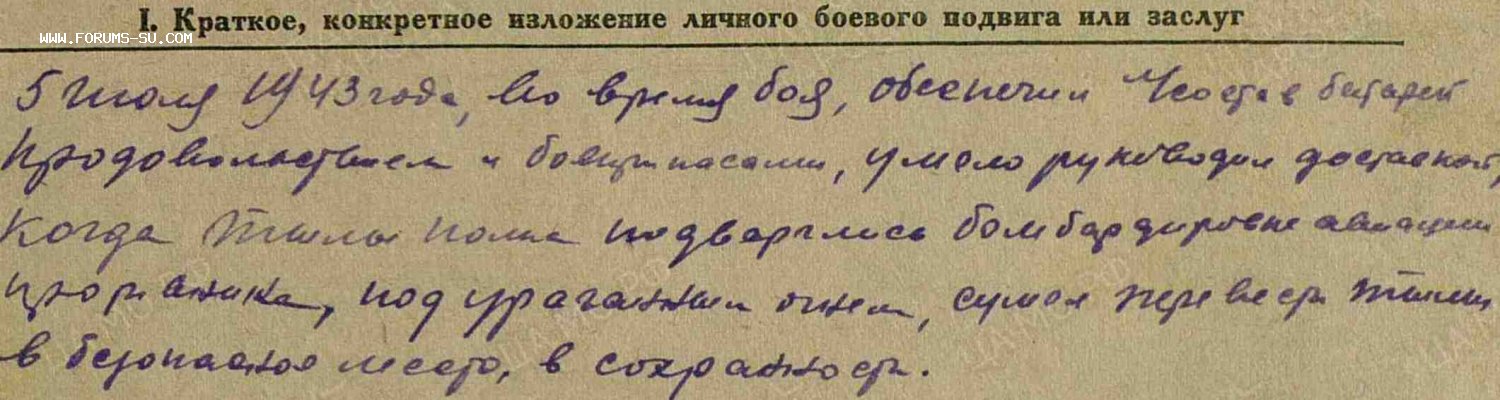 I. Краткое, конкретное изложение личного боевого подвига или заслуг
WWW.FORUMS-SU.COM
5 июля 1943 года, во время боя, обеспечил состав батарей
продовольствием и боеприпасами, умело руководил доставкой,
когда тылы полка подверглись бомбардировке авиации
противника, под ураганным огнем, сумел перевести тылы
в безопасное место, в сохранности.